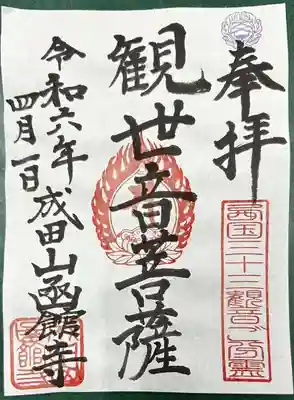 奉拝
西国三十三観音御分霊
観世音菩薩
令和六年
四月一日
成田山函館寺